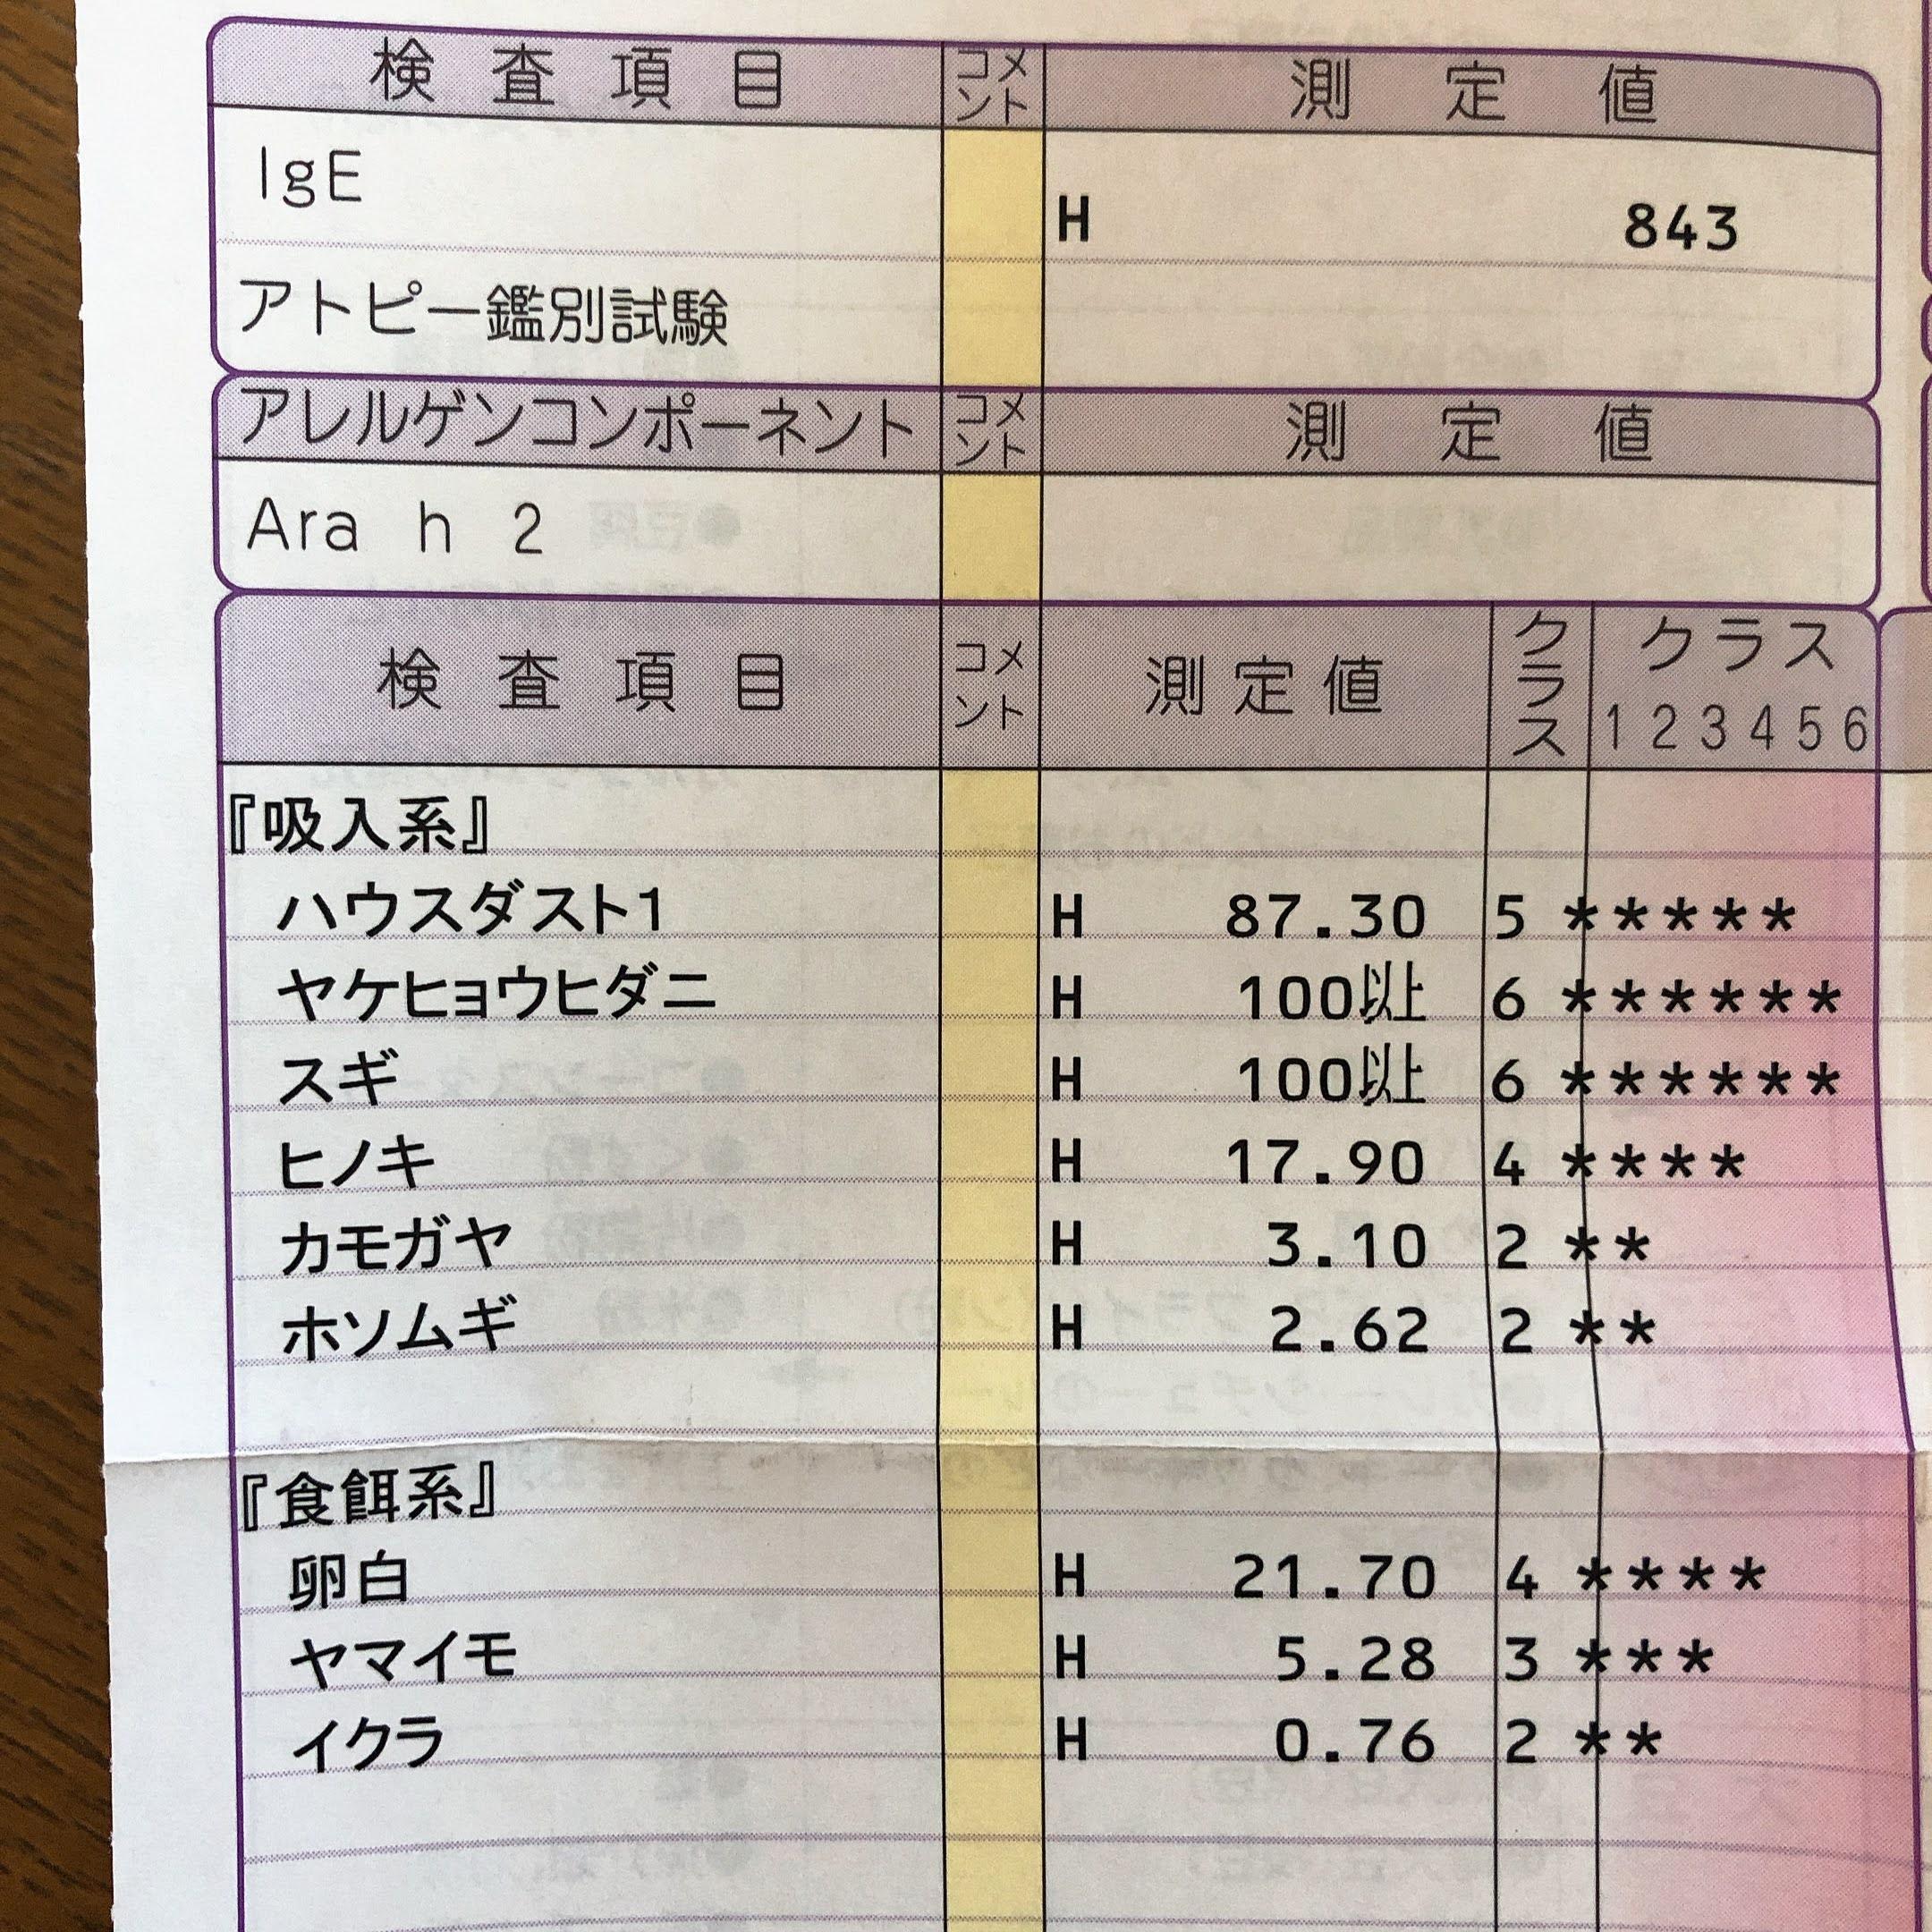 検査項目 コメント 測定値
IgE H 843
アトピー鑑別試験
アレルゲンコンポーネント コメント 測定値
Ara h 2
検査項目 コメント 測定値 クラス クラス
1 2 3 4 5 6
『吸入系』
ハウスダスト1 H 87.30 5 *****
ヤケヒョウヒダニ H 100以上 6 ******
スギ H 100以上 6 ******
ヒノキ H 17.90 4 ****
カモガヤ H 3.10 2 **
ホソムギ H 2.62 2 **
『食餌系』
卵白 H 21.70 4 ****
ヤマイモ H 5.28 3 ***
イクラ H 0.76 2 **